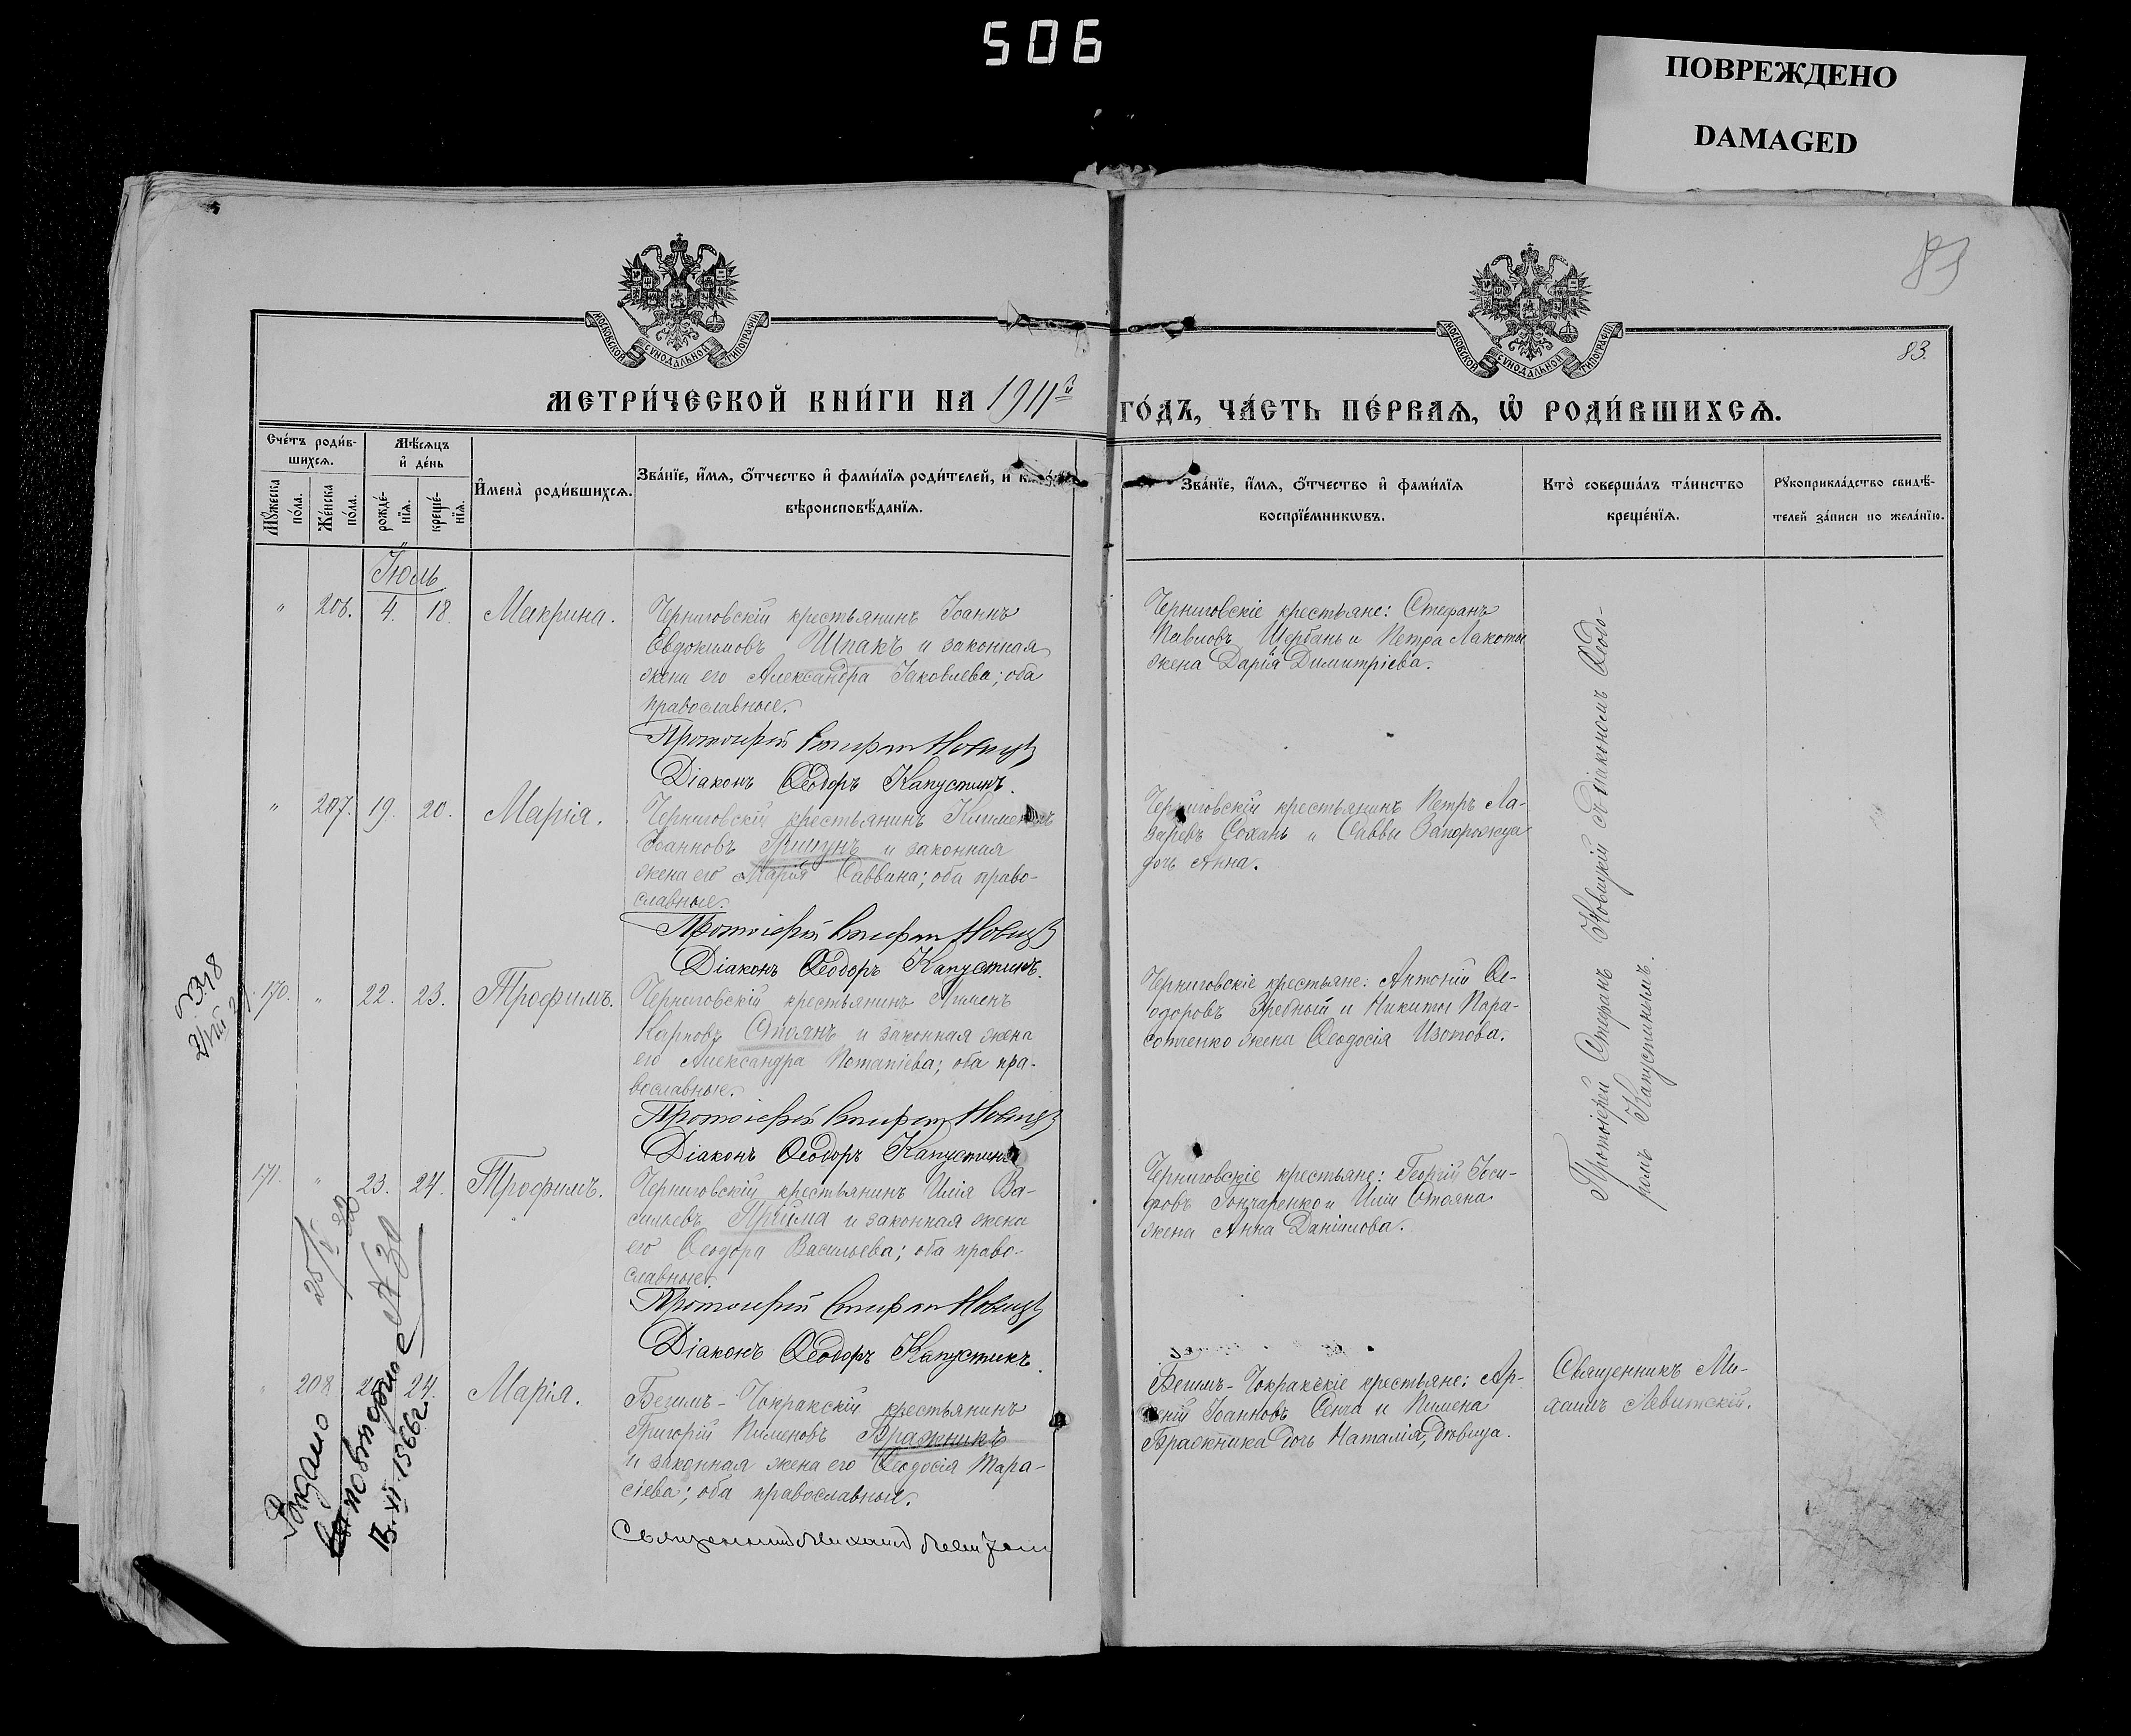 506
ПОВРЕЖДЕНО
DAMAGED
83
83.
МОСКОВСКОЙ СѴНОДАЛЬНОЙ ТИПОГРАФІИ
МОСКОВСКОЙ СѴНОДАЛЬНОЙ ТИПОГРАФІИ
МЕТРИ́ЧЕСКОЙ КНИ́ГИ НА 1911й ГО́ДЪ, ЧА́СТЬ ПЕ́РВАѦ, Ѡ҆ РОДИ́ВШИХСѦ.
Сче́тъ роди́в-
шихсѧ.
Мѣ́сѧцъ
и҆ де́нь
Мꙋ́жеска
по́ла.
Же́нска
по́ла.
рожде́-
нїѧ.
креще́-
нїѧ.
И҆мена̀ роди́вшихсѧ.
Зва́нїе, и҆́мѧ, ѻ҆́тчество и҆ фами́лїѧ роди́телей, и҆
вѣроисповѣ́данїѧ.
Зва́нїе, и҆́мѧ, ѻ҆́тчество и҆ фами́лїѧ
воспрїе́мникѡвъ.
Кто̀ соверша́лъ та́инство
креще́нїѧ.
Рꙋкоприкла́дство свидѣ́-
телей за́писи по жела́нїю.
Іюль
" 206. 4. 18. Макрина.
Черниговскій крестьянинъ Іоаннъ
Евдокимовъ Шпакъ и законная
жена его Александра Іаковлева; оба
православные.
Протоіерей Стефан Новицкій
Діаконъ Ѳеодоръ Капустинъ.
Черниговскіе крестьяне: Стефанъ
Павловъ Щербань и Петра Лакоты
жена Дарія Димитріева.
" 207. 19. 20. Марія.
Черниговскій крестьянинъ Климентъ
Іоанновъ и законная
жена его Марія Саввина; оба право-
славные.
Протоіерей Стефан Новицкій
Діаконъ Ѳеодоръ Капустинъ.
Черниговскій крестьянинъ Петръ Ла-
заревъ Сохань и Саввы Запорожца
дочь Анна.
170. " 22. 23. Трофимъ.
Черниговскій крестьянинъ Пименъ
Карповъ Стоянъ и законная жена
его Александра Потапіева; оба пра-
вославные.
Протоіерей Стефан Новицкій
Діаконъ Ѳеодоръ Капустинъ
Черниговскіе крестьяне: Антоній Ѳе-
одоровъ и Никиты Пара-
сотченко жена Ѳеодосія Изотова.
171. " 23. 24. Трофимъ.
Черниговскій крестьянинъ Илія Ва-
сильевъ Прийма и законная жена
его Ѳеодора Васильева; оба право-
славные.
Протоіерей Стефан Новицкій
Діаконъ Ѳеодоръ Капустинъ.
Черниговскіе крестьяне: Георгій Іоси-
фовъ Гончаренко и Иліи Стояна
жена Анна Даніилова.
Протоіерей Стефанъ Новицкій съ діакономъ Ѳеодо-
ромъ Капустинымъ.
" 208 24. Марія.
Бегимъ-Чокракскій крестьянинъ
Григорій Пименовъ Бражникъ
и законная жена его Ѳеодосія Тара-
сіева; оба православные.
Священникъ Михаилъ Левитскій
Бегимъ-Чокракскіе крестьяне: Ар-
сеній Іоанновъ Сенча и Пимена
Бражника дочь Наталія, дѣвица.
Священникъ Ми-
хаилъ Левитскій.
№ 30
Выдано
повторное
1966г.